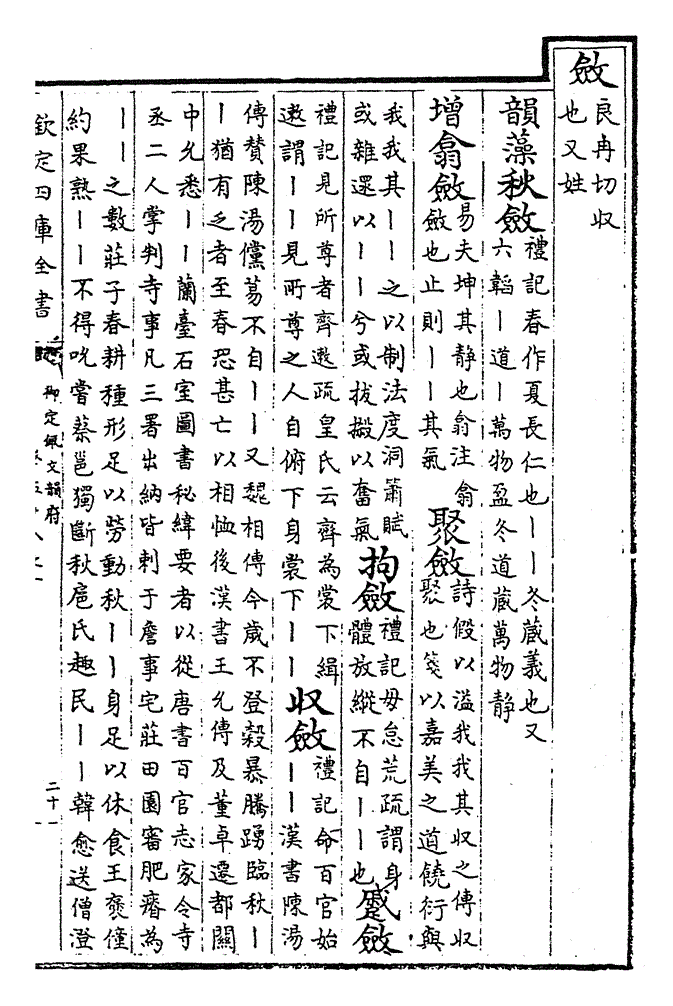 斂良冉切収
也又姓
韻藻秋斂禮記春作夏長仁也丨丨冬藏義也又
六韜丨道丨萬物盈冬道藏萬物静
增翕斂易夫坤其静也翕注翕
斂也止則丨丨其氣
聚斂詩假以溢我我其収之傳収
聚也箋以嘉美之道饒衍與
我我其丨丨之以制法度洞簫賦
或雜遝以丨丨兮或拔摋以奮氣
拘斂禮記毋怠荒疏謂身
體放縱不自丨丨也
蹙斂
禮記見所尊者齊遬疏皇氏云齊為裳下緝
遬謂丨丨見所尊之人自俯下身裳下丨丨
収斂禮記命百官始
丨丨漢書陳湯
傳賛陳湯儻蕩不自丨丨又魏相傳今歳不登榖暴騰踴臨秋丨
丨猶有乏者至春恐甚亡以相恤後漢書王允傳及董卓遷都關
中允悉丨丨蘭臺石室圖書秘緯要者以從唐書百官志家令寺
丞二人掌判寺事凡三署出納皆刺于詹事宅莊田園審肥瘠為
丨丨之數莊子春耕種形足以勞動秋丨丨身足以休食王褒僮
約果熟丨丨不得吮嘗蔡邕獨斷秋扈氏趣民丨丨韓愈送僧澄
欽定四庫全書
御定佩文韻府
二十一